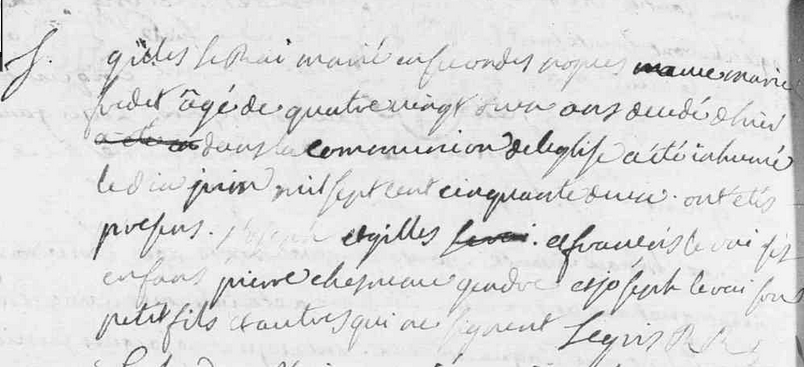 S. gilles le Rai marié en secondes nopces marie
fredet âgé de quatre vingt deux ans decedé d'hier
dans la communion de leglise a été inhumé
le dix juin mil sept cent cinquante deux. ont etés
presens. Joseph et gilles et francois le rai ses
enfans pierre chesneau gendre et joseph le rai son
petit fils et autres qui ne signent Legris